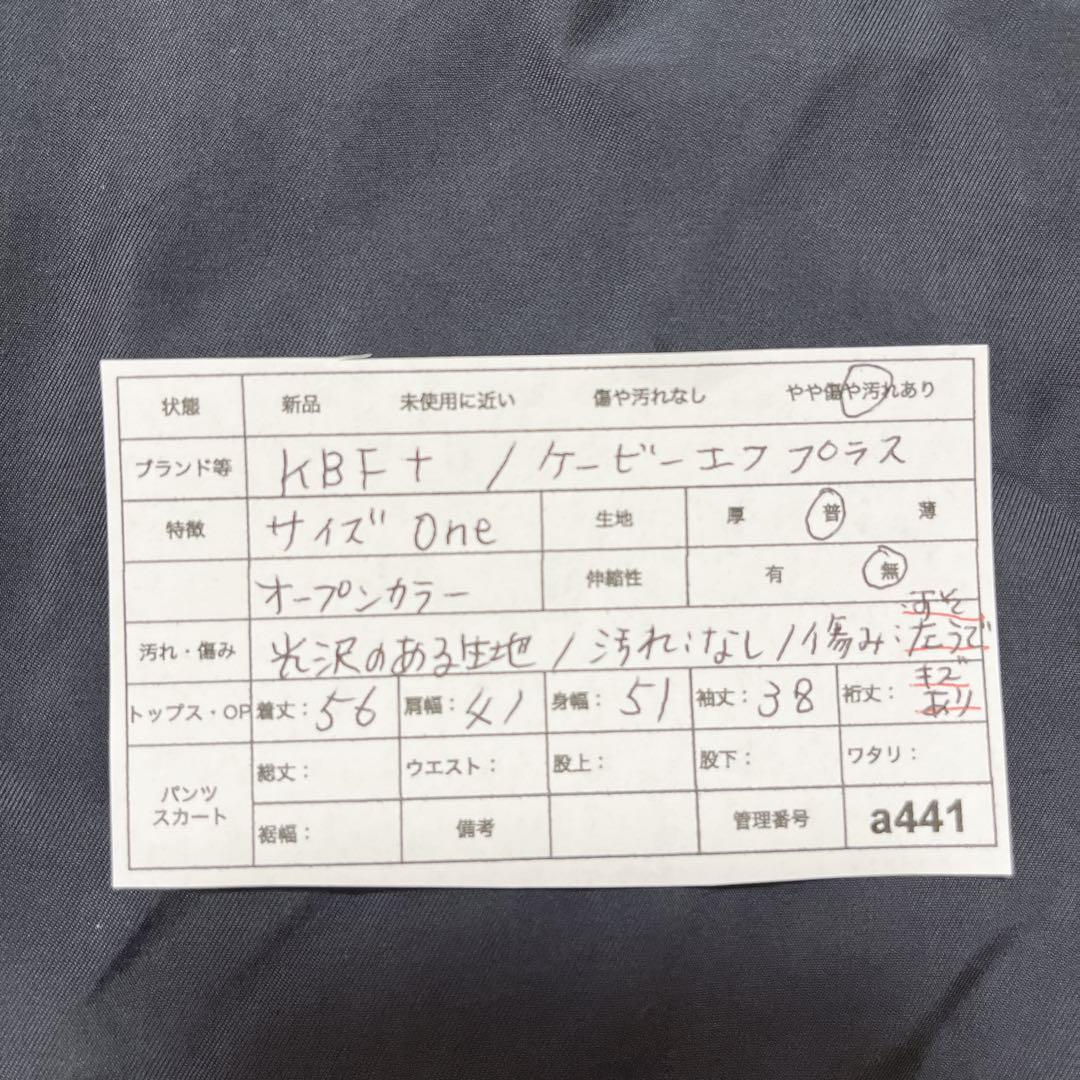 状態 新品 未使用に近い 傷や汚れなし やや傷や汚れあり
ブランド等 KBF+ / ケービーエフプラス
特徴 サイズ One 生地 厚 普 薄
オープンカラー 伸縮性 有 無
汚れ・傷み 光沢のある生地 / 汚れ:なし / 傷み:すそ
左うで
キズ
あり
トップス・OP 着丈:56 肩幅:41 身幅:51 袖丈:38 裄丈:
パンツ
スカート
総丈: ウエスト: 股上: 股下: ワタリ:
裾幅: 備考 管理番号 a441